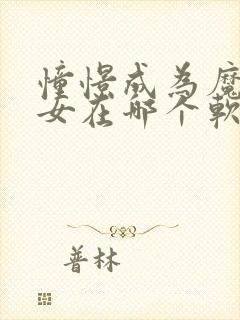 憧憬成為魔
女在哪个軟
普林